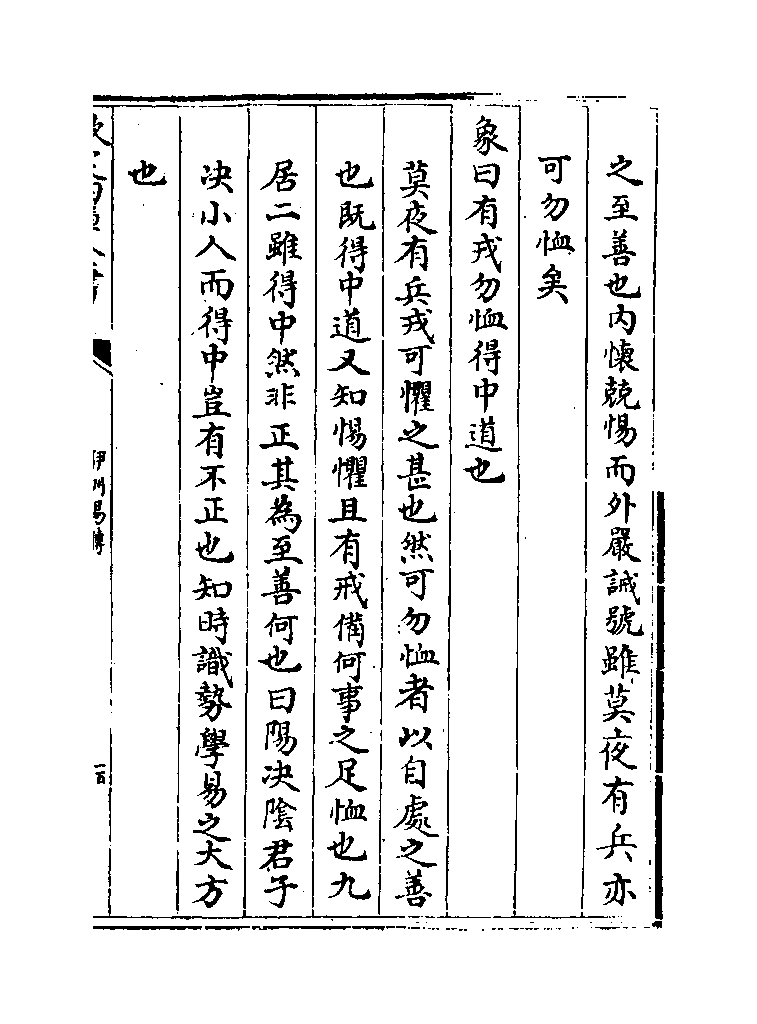 之至善也内懐兢惕而外嚴誡號雖莫夜有兵亦
可勿恤矣
象曰有戎勿恤得中道也
莫夜有兵戎可懼之甚也然可勿恤者以自處之善
也既得中道又知惕懼且有戒備何事之足恤也九
居二雖得中然非正其為至善何也曰陽决陰君子
决小人而得中豈有不正也知時識勢學易之大方
也
伊川易傳
一百